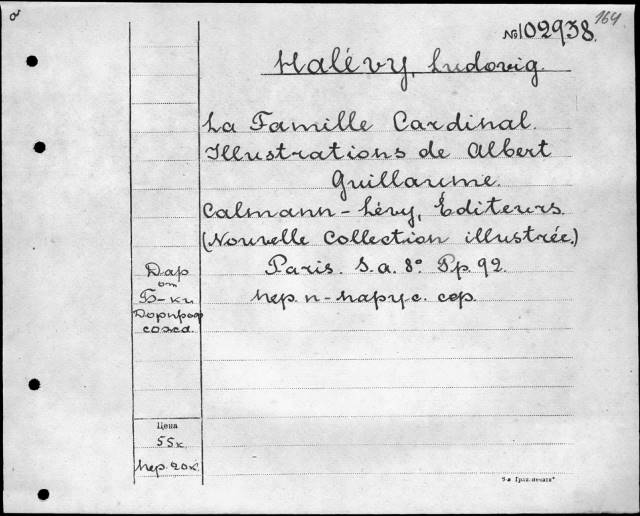 164
№102938.
Halévy, Ludovig.
La Famille Cardinal.
Illustrations de Albert
Guillaume.
Calmann-Lévy, Éditeurs.
(Nouvelle Collection illustrée.)
Paris. S.a. 8° Pp. 92.
пер. п-парус. сор.
Дар
от
Б-ки
Дорпроф
сожа.
Цена
55к.
пер. 20к.